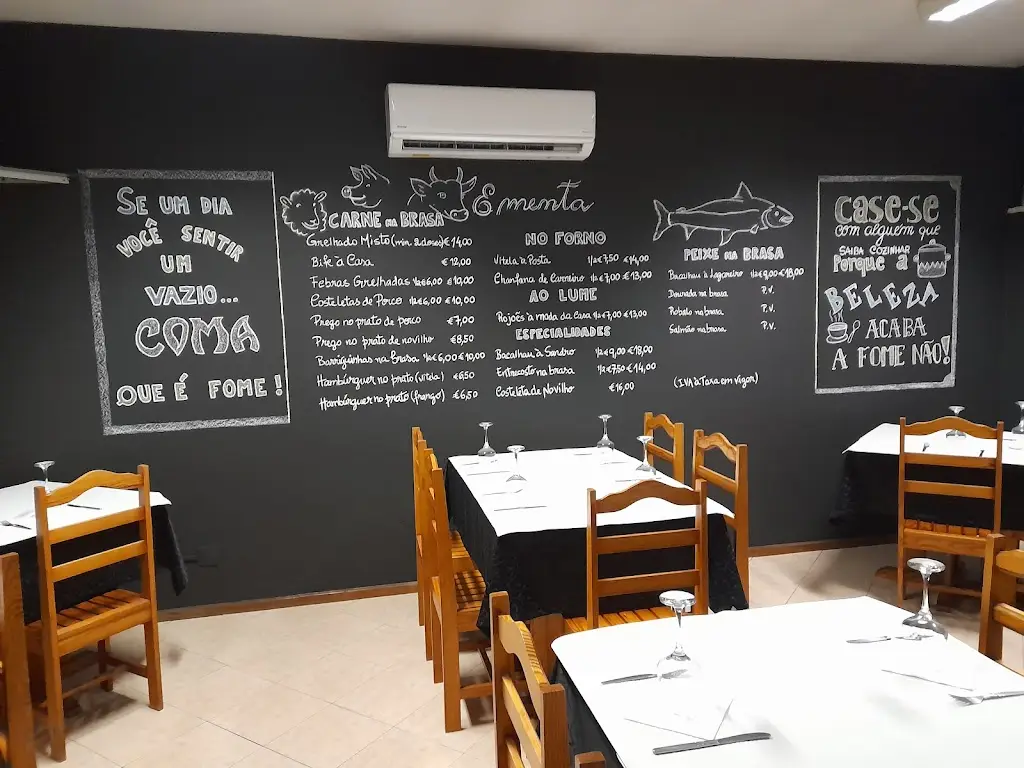 SE UM DIA
VOCÊ SENTIR
UM
VAZIO...
COMA
QUE É FOME!
Ementa
CARNE NA BRASA
Grelhado Misto (min. 2 doses) € 14,00
Bife à Casa € 12,00
Febras Grelhadas 1/2 € 6,00 € 10,00
Costeletas de Porco 1/2 € 6,00 € 10,00
Prego no prato de porco € 7,00
Prego no prato de novilho € 8,50
Barriguinhas na brasa 1/2 € 6,00 € 10,00
Hambúrguer no prato (vitela) € 6,50
Hambúrguer no prato (frango) € 6,50
NO FORNO
Vitela à Posta 1/2 € 7,50 € 14,00
Chanfana de Carneiro 1/2 € 7,00 € 13,00
AO LUME
Rojões à moda da casa 1/2 € 7,00 € 13,00
ESPECIALIDADES
Bacalhau à Sandro 1/2 € 9,00 € 18,00
Entrecosto na brasa 1/2 € 7,50 € 14,00
Costeleta de Novilho € 16,00
PEIXE NA BRASA
Bacalhau à Lagareiro 1/2 € 9,00 € 18,00
Dourada na brasa P.V.
Robalo na brasa P.V.
Salmão na brasa P.V.
(IVA à Taxa em vigor)
CASE-SE
com alguém que
SAIBA COZINHAR
Porque a
BELEZA
ACABA
A FOME NÃO!